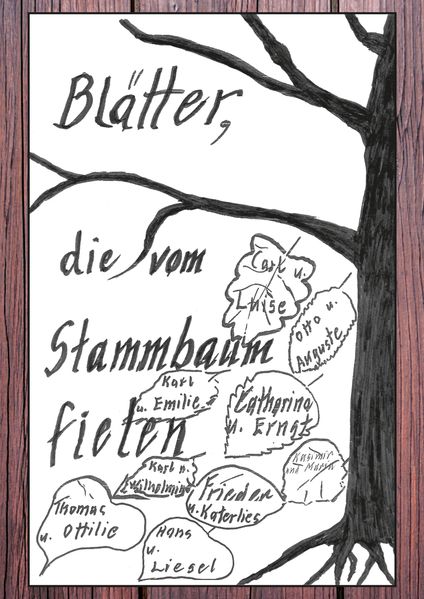 Blätter,
die vom
Stammbaum
fielen
Carl u.
Luise
Otto u.
Auguste
Karl
u. Emilie
Catharina
u. Ernst
Karl u.
Wilhelmine
Frieder
u. Katerlies
Kasimir
und Maria
Thomas
u. Ottilie
Hans
u.
Liesel